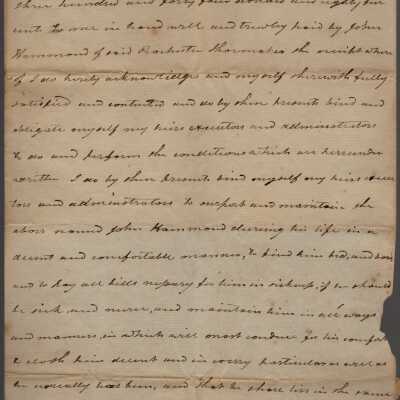 three hundred and forty four dollars and eighty five
cent to me in hand well and trewly paid by John
Hammond of said Rochester Shoemaker the receipt where
of I do hereby acknowledge and myself therewith fully
satisfied and contented and do by these presents bind and
obligate myself my heirs executors and administrators
to do and perform the conditions which are hereunder
written I do by these Presents bind myself my heirs execu
tors and administrators to support and maintain the
above named John Hammond during his life in a
decent and comfortable manner, to find him bed, and
and to pay all bills nessary for him in sickness, if he should
be sick and nurse, and maintain him in all ways
and manners, in which will most conduce for his comfort
to cloth him decent and in every particular as well as
he usually has been, and that he shall live in the same